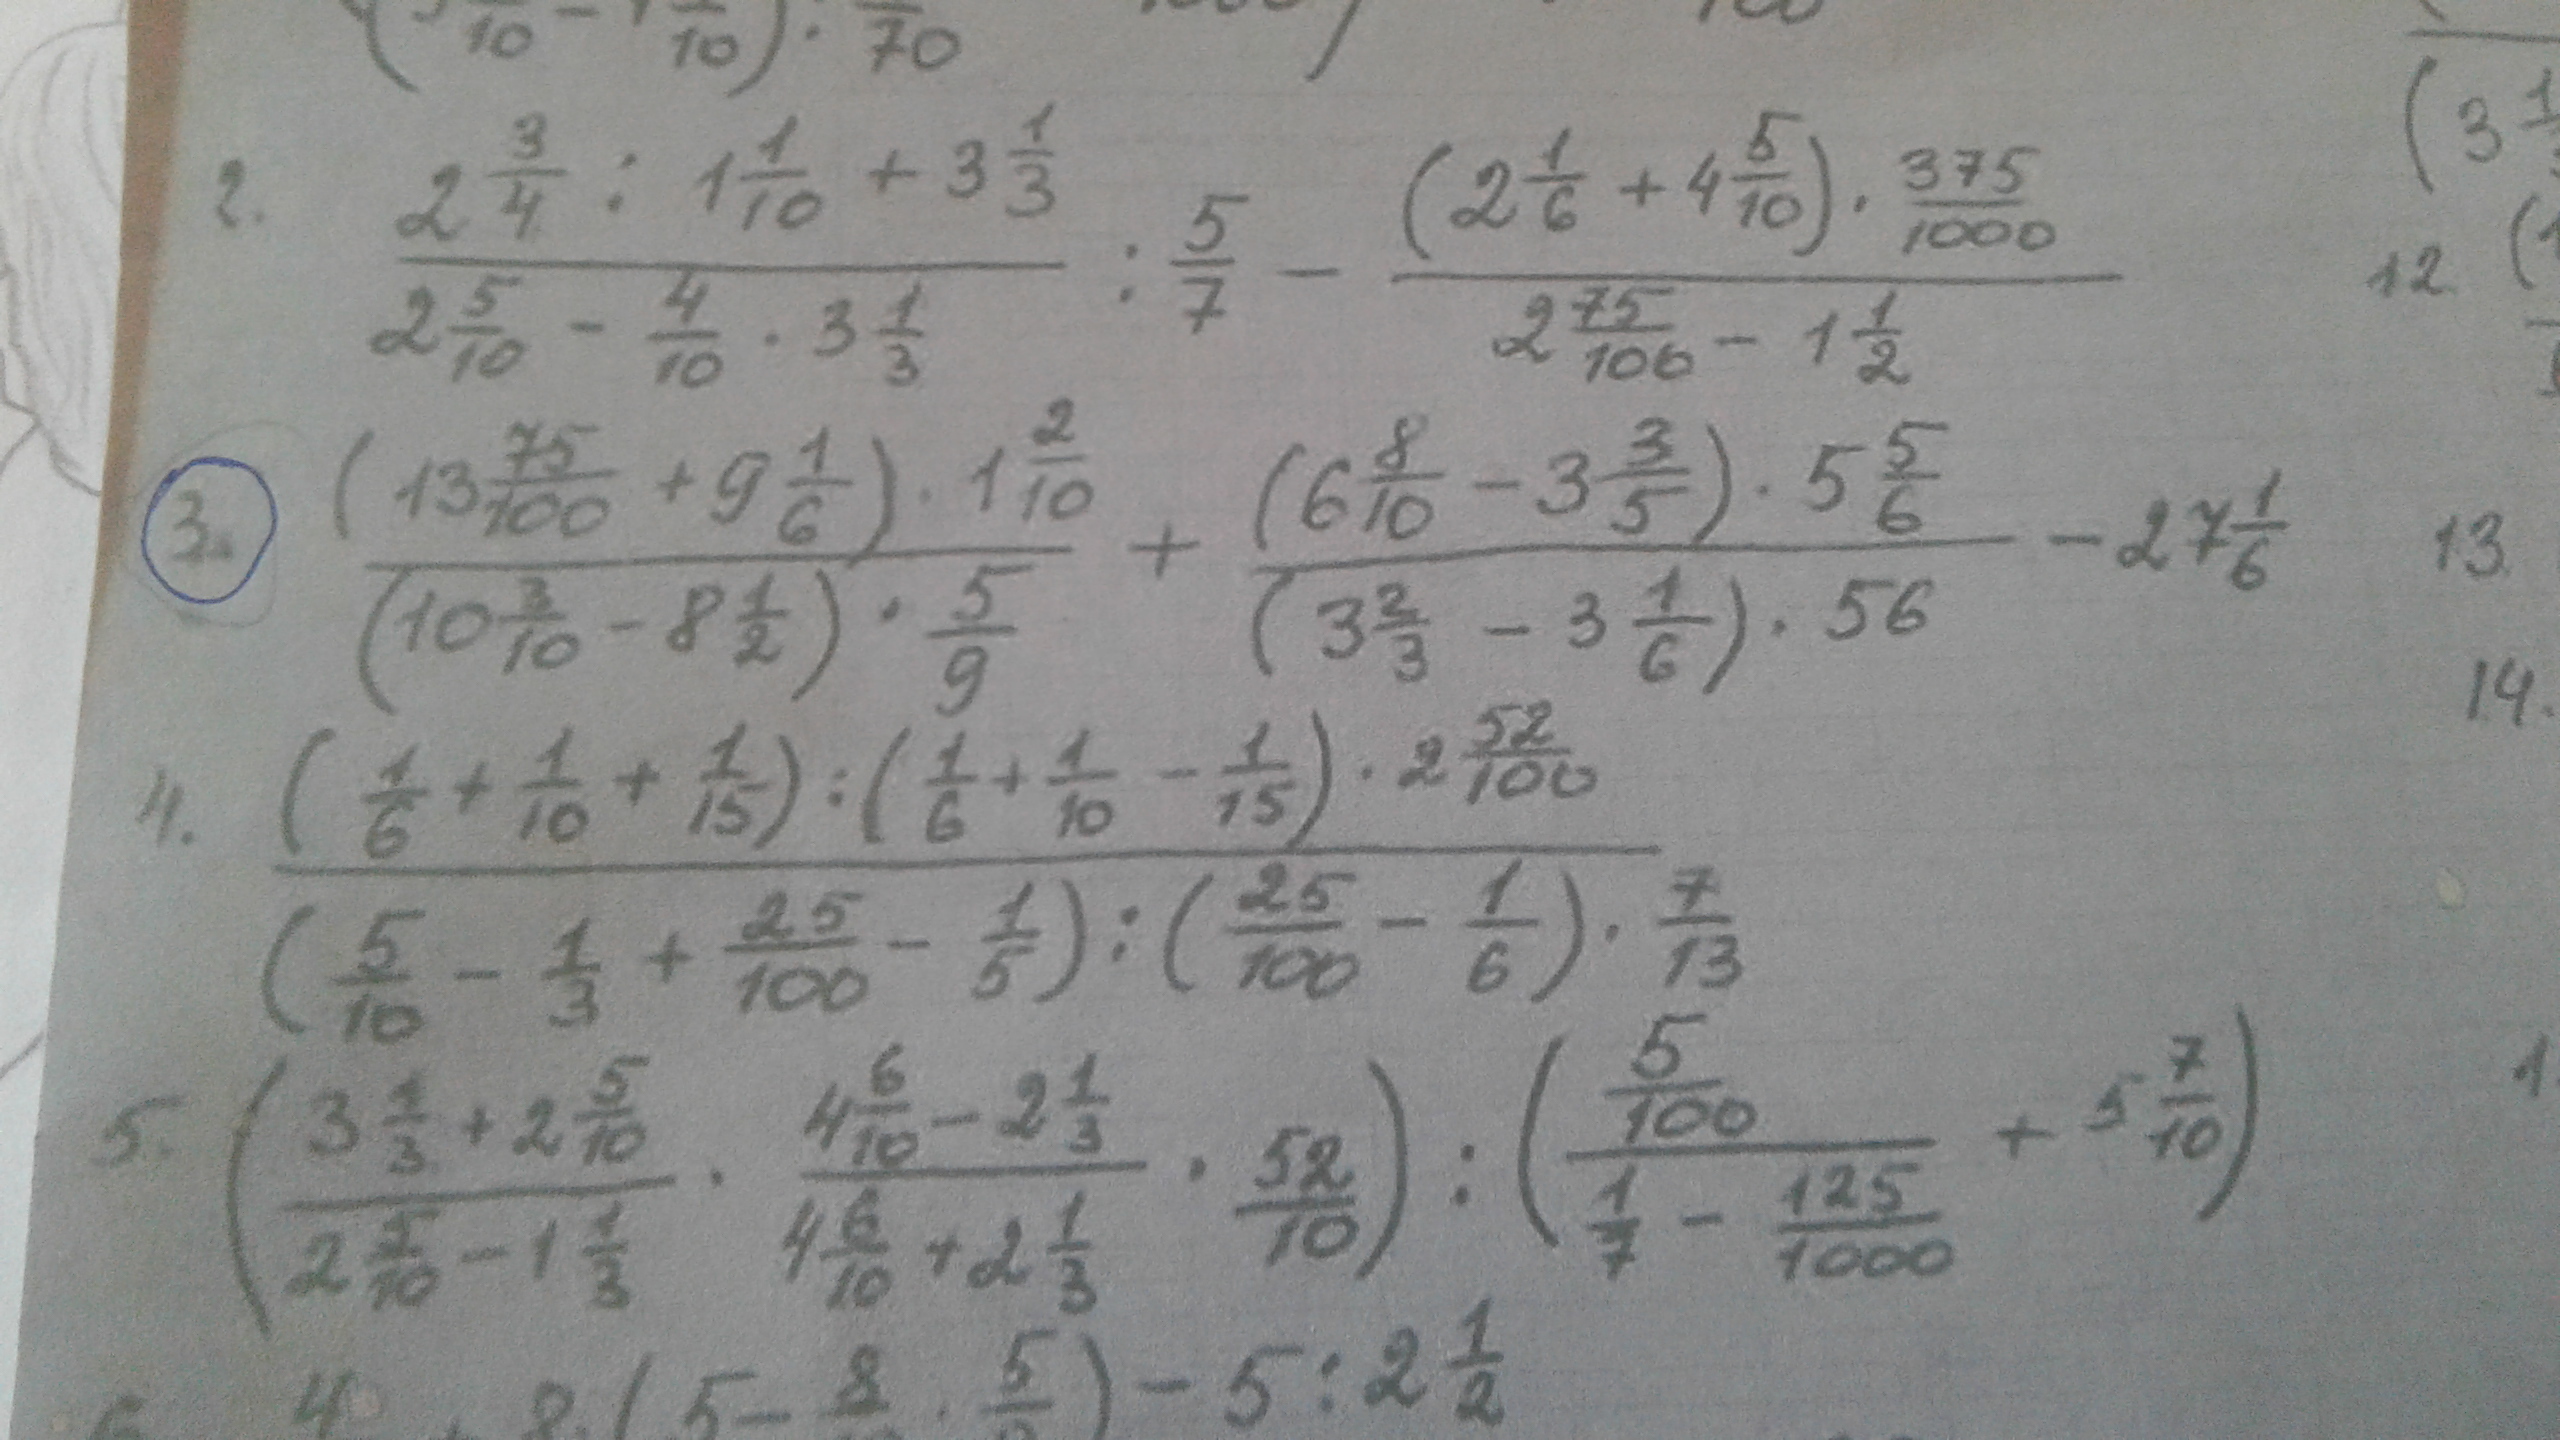 10 10) : 70
2. (2 3/4 : 1 1/10 + 3 1/3)/(2 5/10 - 4/10 · 3 1/3) : 5/7 - ((2 1/6 + 4 5/10) · 375/1000)/(2 75/100 - 1 1/2)
3. ((13 75/100 + 9 1/6) · 1 2/10)/((10 3/10 - 8 1/2) · 5/9) + ((6 8/10 - 3 3/5) · 5 5/6)/((3 2/3 - 3 1/6) · 56) - 27 1/6
4. ((1/6 + 1/10 + 1/15) : (1/6 + 1/10 - 1/15) · 2 52/100)/((5/10 - 1/3 + 25/100 - 1/5) : (25/100 - 1/6) · 7/13)
5. ((3 1/3 + 2 5/10)/(2 5/10 - 1 1/3) · (4 6/10 - 2 1/3)/(4 6/10 + 2 1/3) · 52/10) : ((5/100)/(1/7 - 125/1000) + 5 7/10)
6. 4 + 8 · (5 - 8 · 5) - 5 : 2 1/2
(3 1
12. (1
13.
14.
1